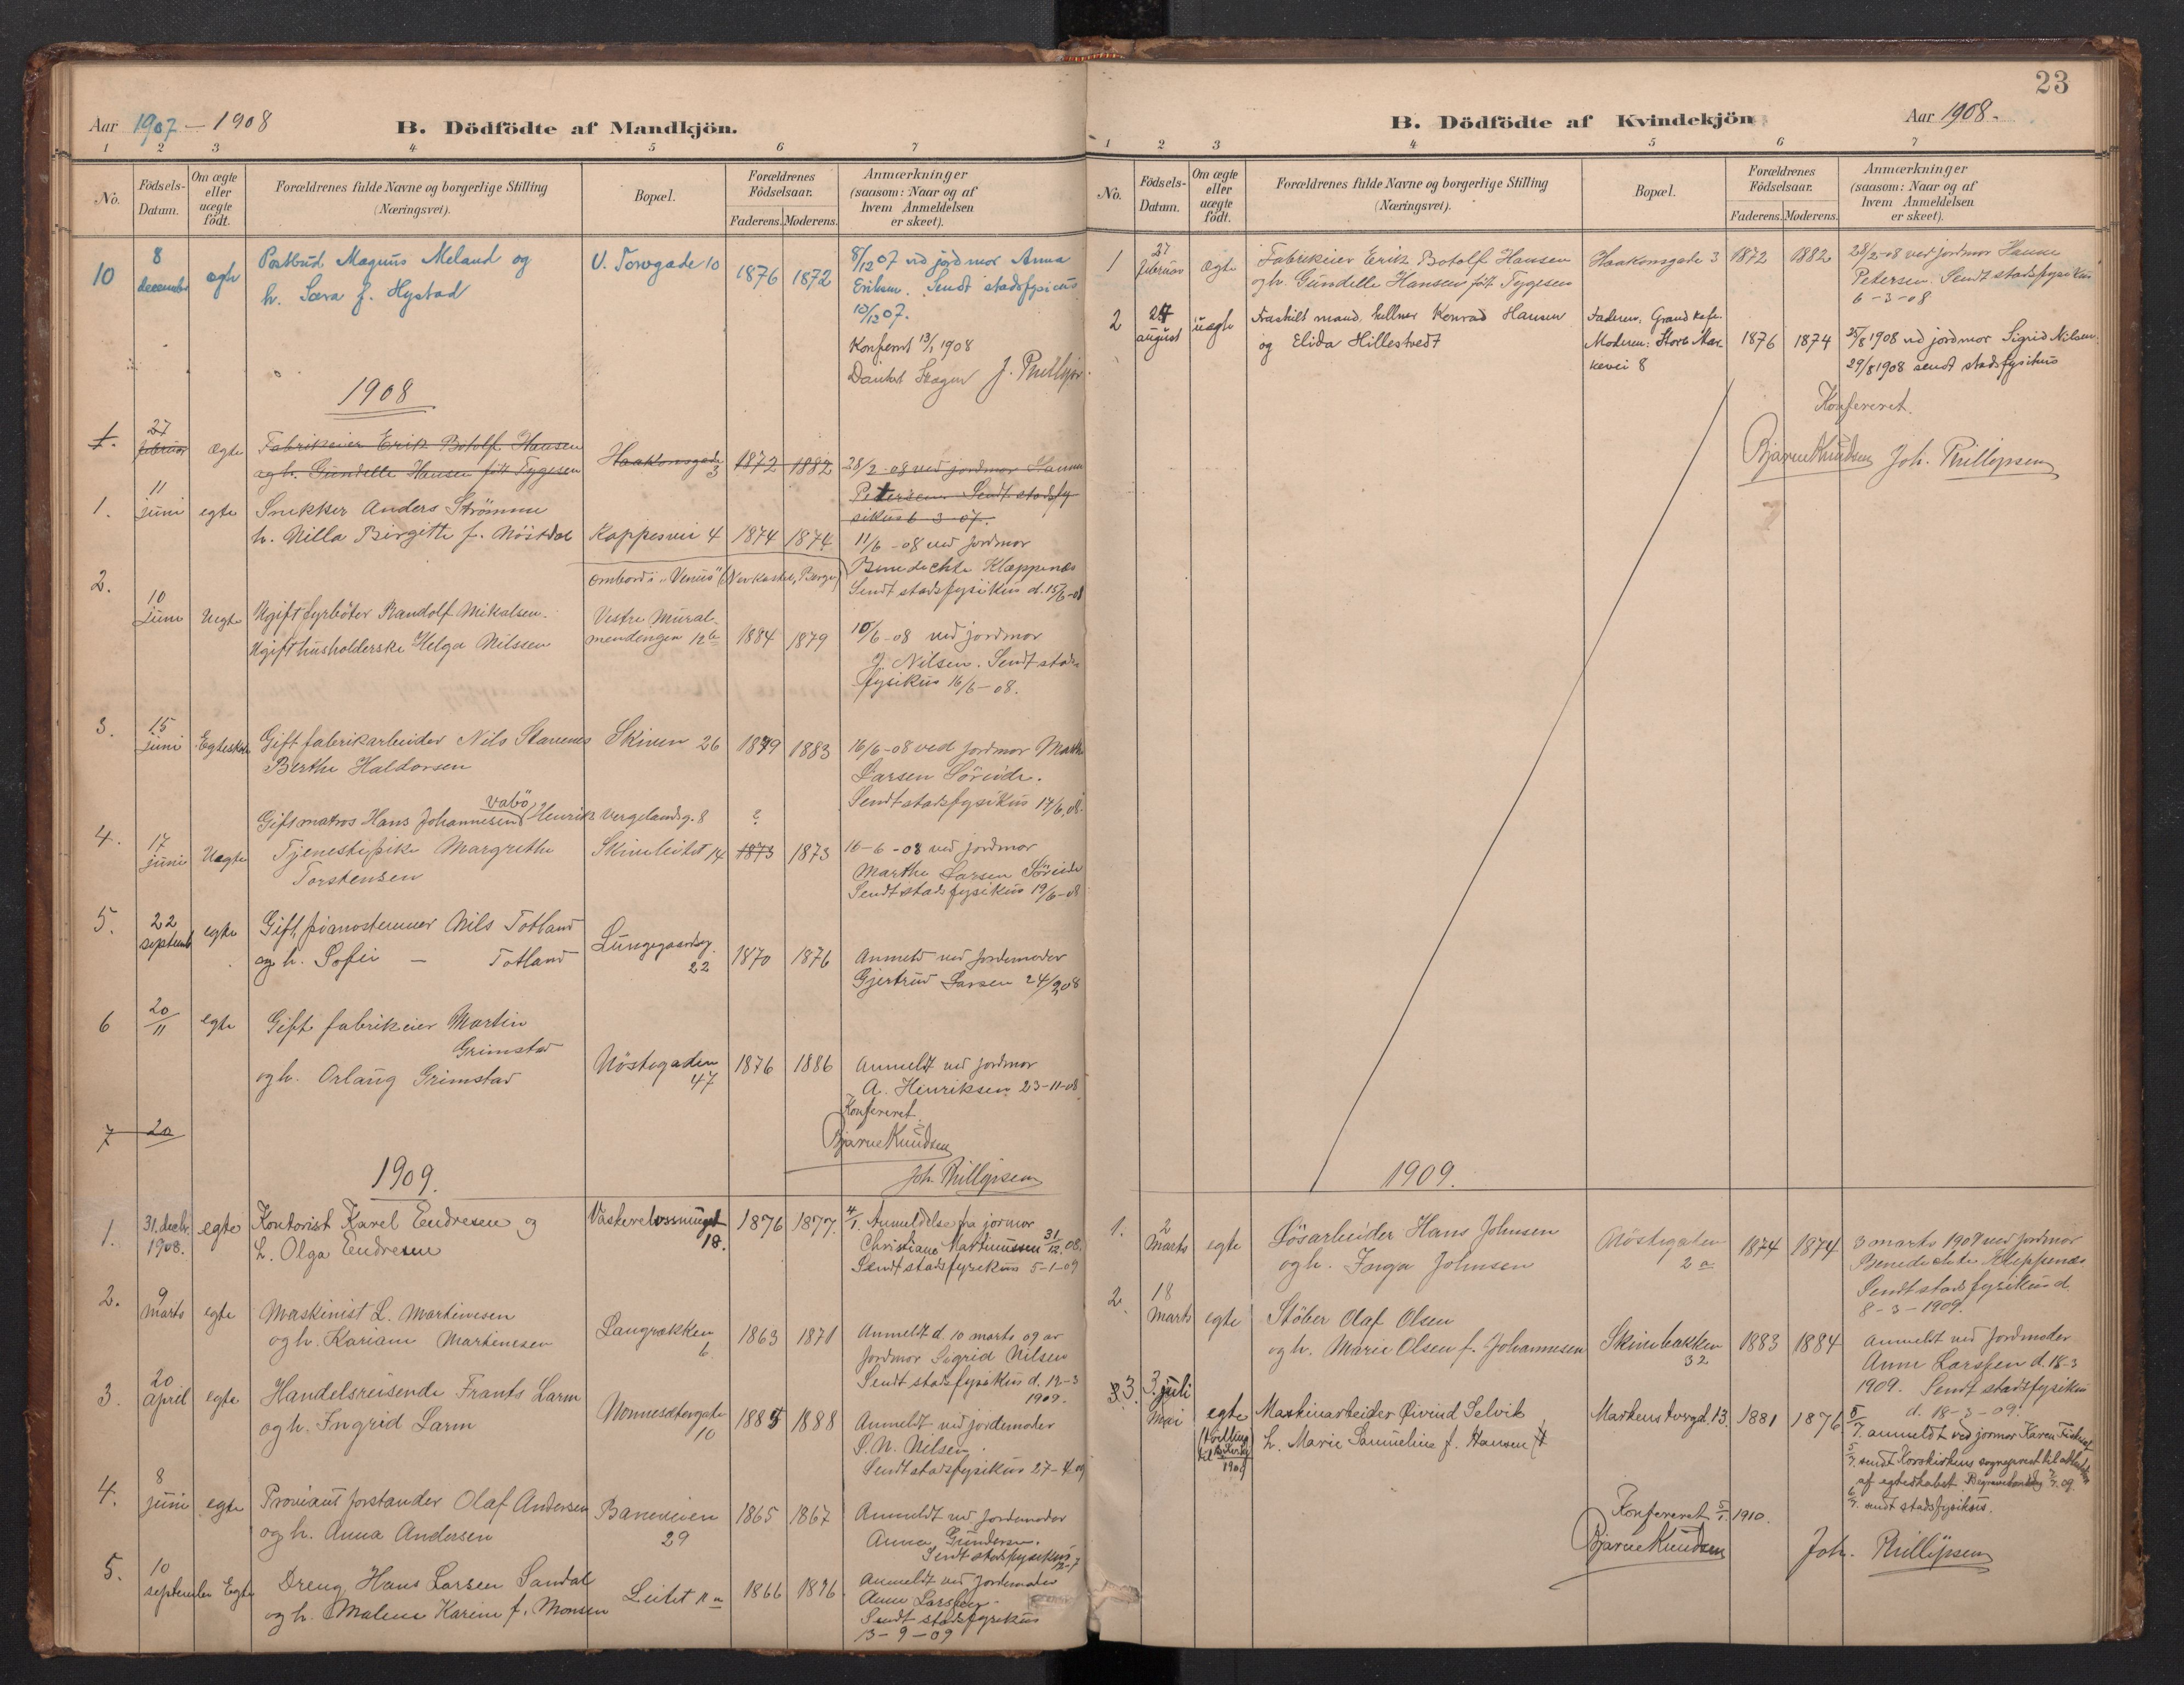 Aar 1907 – 1908
B. Dödfödte af Mandkjön.
1 2 3 4 5 6 7
No.
Födsels-
Datum.
Om ægte
eller
uægte
födt.
Forældrenes fulde Navne og borgerlige Stilling
(Næringsvei).
Bopæl.
Forældrenes
Födselsaar.
Faderens. Moderens.
Anmærkninger
(saasom: Naar og af
hvem Anmeldelsen
er skeet).
10
8
december
ægte
Postbud Magnus Meland og
h. Sara f. Hystad
V. Torvgade 10
1876 1872
8/12 07 ved jordmor Anna
Eriksen. Sendt stadsfysicus
10/12 07.
Konferert 13/1 1908
J. Phillipsen
1908
1.
27
februar
ægte
Fabrikeier Erik Botolf Hansen
og h. Gundelle Hansen föt Tygesen
Haakonsgade
3
1872 1882
28/2-08 ved jordmor Hanne
Petersen Sendt stadsfy
sikus 6-3-07.
1.
11
juni
egte
Snekker Anders Strömme
h. Nilla Birgitte f. Nöstdal
Kappesvei 4
1874 1874
11/6 -08 ved jordmor
Benedichte Kleppenes
Sendt stadsfysikus d. 15/6-08
2.
10
juni
Uegte
ombord i "Venus" (Newkastel, Bergen)
Ugift fyrböter Randolf Mikalsen.
Ugift husholderske Helga Nilssen
Vestre Mural-
mendingen 12 b
1884 1879
10/6-08 ved jordmor
J. Nilsen. Sendt stads
fysikus 16/6-08.
3.
15
juni
Gift fabrikarbeider Nils Stanenes
Berthe Haldorsen
Skiven 26
1879 1883
16/6-08 ved jordmor Marthe
Larsen Söreide.
Sendt stadsfysikus 17/6,08.
4.
17
juni
Uegte
Vabö
Gift matros Hans Johannesen, Henrik Vergelandsg. 8
Tjenestepike Margrethe
Torstensen
Skiveleitet 14
?
1873 1873
16-6-08 ved jordmor
Marthe Larsen Söreide
Sendt stadsfysikus 19/6-08
5.
22
septemb
egte
Gift, pianostemmer Nils Totland
og h. Sofie – Totland
Lungegaardsg.
22
1870 1876
Anmeldt ved Jordemoder
Gjertrud Larsen 24/9 08
6
20
11
egte
Gift fabrikeier Martin
Grimstad
og h. Orlaug Grimstad
Nöstegaden
47
1876 1886
Anmeldt ved jordmor
A. Henriksen 23-11-08.
Konfereret
Bjarne Knudsen
Joh. Phillipsen
7 20
1909.
1.
31. decbr.
1908.
egte
Kontorist Karel Endresen og
h. Olga Endresen
Vaskerelvssmuget
18.
1876 1877.
4/1. Anmeldelse fra jormor
Christiane Martinussen 31/12 08.
Sendt stadsfysikus 5-1-09
2.
9
marts
egte
Maskinist L. Martinesen
og h. Kariane Martinesen
Langrækken
6.
1863 1871
Anmeldt d. 10 marts 09 av
Jordmor Sigrid Nilsen
Sendt stadsfysikus d. 12-3
1909.
3.
20
april
egte
Handelsreisende Frants Larm
og h. Ingrid Larm
Nonnesetergate
10
1885 1888
Anmeldt ved jordemoder
S. N. Nilsen.
Sendt stadsfysikus 27-4 09
4.
8
juni
egte
Proviant forstander Olaf Andersen
og h. Anna Andersen
Baneveien
29
1865 1867
Anmeldt ved Jordemoder
Anna Gundersen.
Sendt stadsfysikus
12-7
5.
10
september
Egte
Dreng Hans Larsen Sandal
og h. Malene Karine f. Monsen
Leitet 11 a
1866 1876.
Anmeldt ved Jordemoder
Anne Larssen
Sendt stadsfysikus
13-9-09
23
B. Dödfödte af Kvindekjön
Aar 1908.
1 2 3 4 5 6 7
No.
Födsels-
Datum.
Om ægte
eller
uægte
födt.
Forældrenes fulde Navne og borgerlige Stilling
(Næringsvei).
Bopæl.
Forældrenes
Födselsaar.
Faderens. Moderens.
Anmærkninger
(saasom: Naar og af
hvem Anmeldelsen
er skeet).
1
27
februar
Ægte
Fabrikeier Erik Botolf Hansen
og h. Gundelle Hansen föt Tygesen
Haakonsgade 3
1872 1882
28/2-08 ved jordmor Hanne
Petersen. Sendt stadsfysikus
6-3-08
2
24
august
uægte
Fraskilt mand, kellner Konrad Hansen
og Elida Hillestvedt
Faderen: Grand kafe.
Moderen: Store Mar-
kevei 8
1876 1874
25/8 1908 ved jordmor Sigrid Nilsen.
29/8 1908 sendt stadsfysikus
Konfereret.
Bjarne Knudsen Joh. Phillipsen
1909.
1.
2
Marts
egte
Lösarbeider Hans Johnsen
og h. Inga Johnsen
Nöstegaten
2 a
1874 1874
3 marts 1909 ved jordmor
Benedichte Kleppenes
Sendt stadsfysikus d.
8-3-1909.
2.
18
Marts
egte
Stöber Olaf Olsen
og h. Marie Olsen f. Johannesen
Skivebakken
32
1883 1884
Anmeldt ved Jordmoder
Anne Larssen d. 18-3
1909. Sendt stadsfysikus
d. 18-3-09.
3
3. juli
Mai
egte
(tvilling
1909
Maskinarbeider Øivind Selvik
h. Marie Samueline f. Hansen
Markens torvgd. 13.
1881 1876
5/7. anmeldt ved jormor Karen
5/7. sendt Korskirkens sogneprest til
af egteskabet. 7/7. 09
6/7. sendt stadsfysikus.
Konfereret 5/1. 1910.
Bjarne Knudsen Joh. Phillipsen